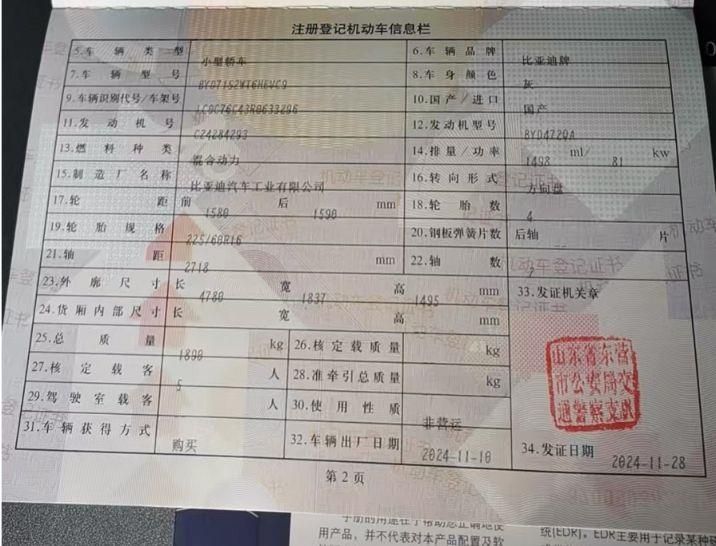 注册登记机动车信息栏
5.车辆类型 小型轿车 6.车辆品牌 比亚迪牌
7.车辆型号 BYD7152WT6HEVC9 8.车身颜色 灰
9.车辆识别代号/车架号 LC0C76C43R0633296 10.国产/进口 国产
11.发动机号 C24284293 12.发动机型号 BYD472QA
13.燃料种类 混合动力 14.排量/功率 1498 ml/ 81 kw
15.制造厂名称 比亚迪汽车工业有限公司 16.转向形式 方向盘
17.轮距 前 1580 后 1590 mm 18.轮胎数 4
19.轮胎规格 225/60R16 20.钢板弹簧片数 后轴 -- 片
21.轴距 2718 mm 22.轴数 2
23.外廓尺寸 长 4780 宽 1837 高 1495 mm 33.发证机关章
24.货厢内部尺寸 长 宽 高 mm
25.总质量 1800 kg 26.核定载质量 kg
27.核定载客 5 人 28.准牵引总质量 kg
29.驾驶室载客 人 30.使用性质 非营运
31.车辆获得方式 购买 32.车辆出厂日期 2024-11-10 34.发证日期 2024-11-28
山东省东营
市公安局交
通警察支队
第2页
手册的用途在于帮助您正确地使
用产品，并不代表对本产品配置及软
统(EDR)。EDR主要用于记录某种碰